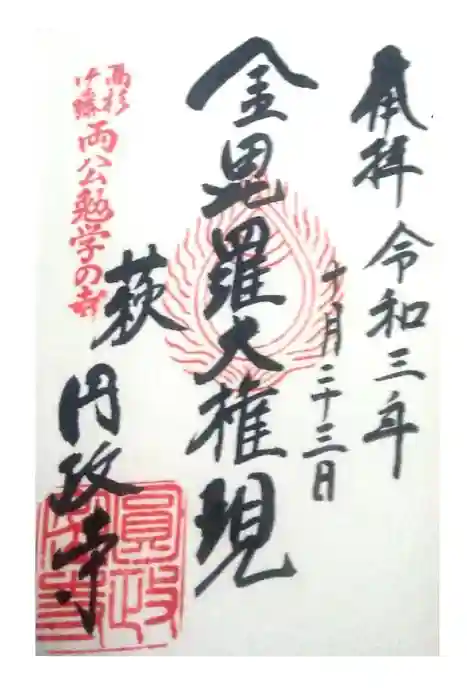 奉拝 令和三年
十月二十三日
金毘羅大権現
萩 円政寺
高杉
伊藤
両公勉学の寺
圓政寺